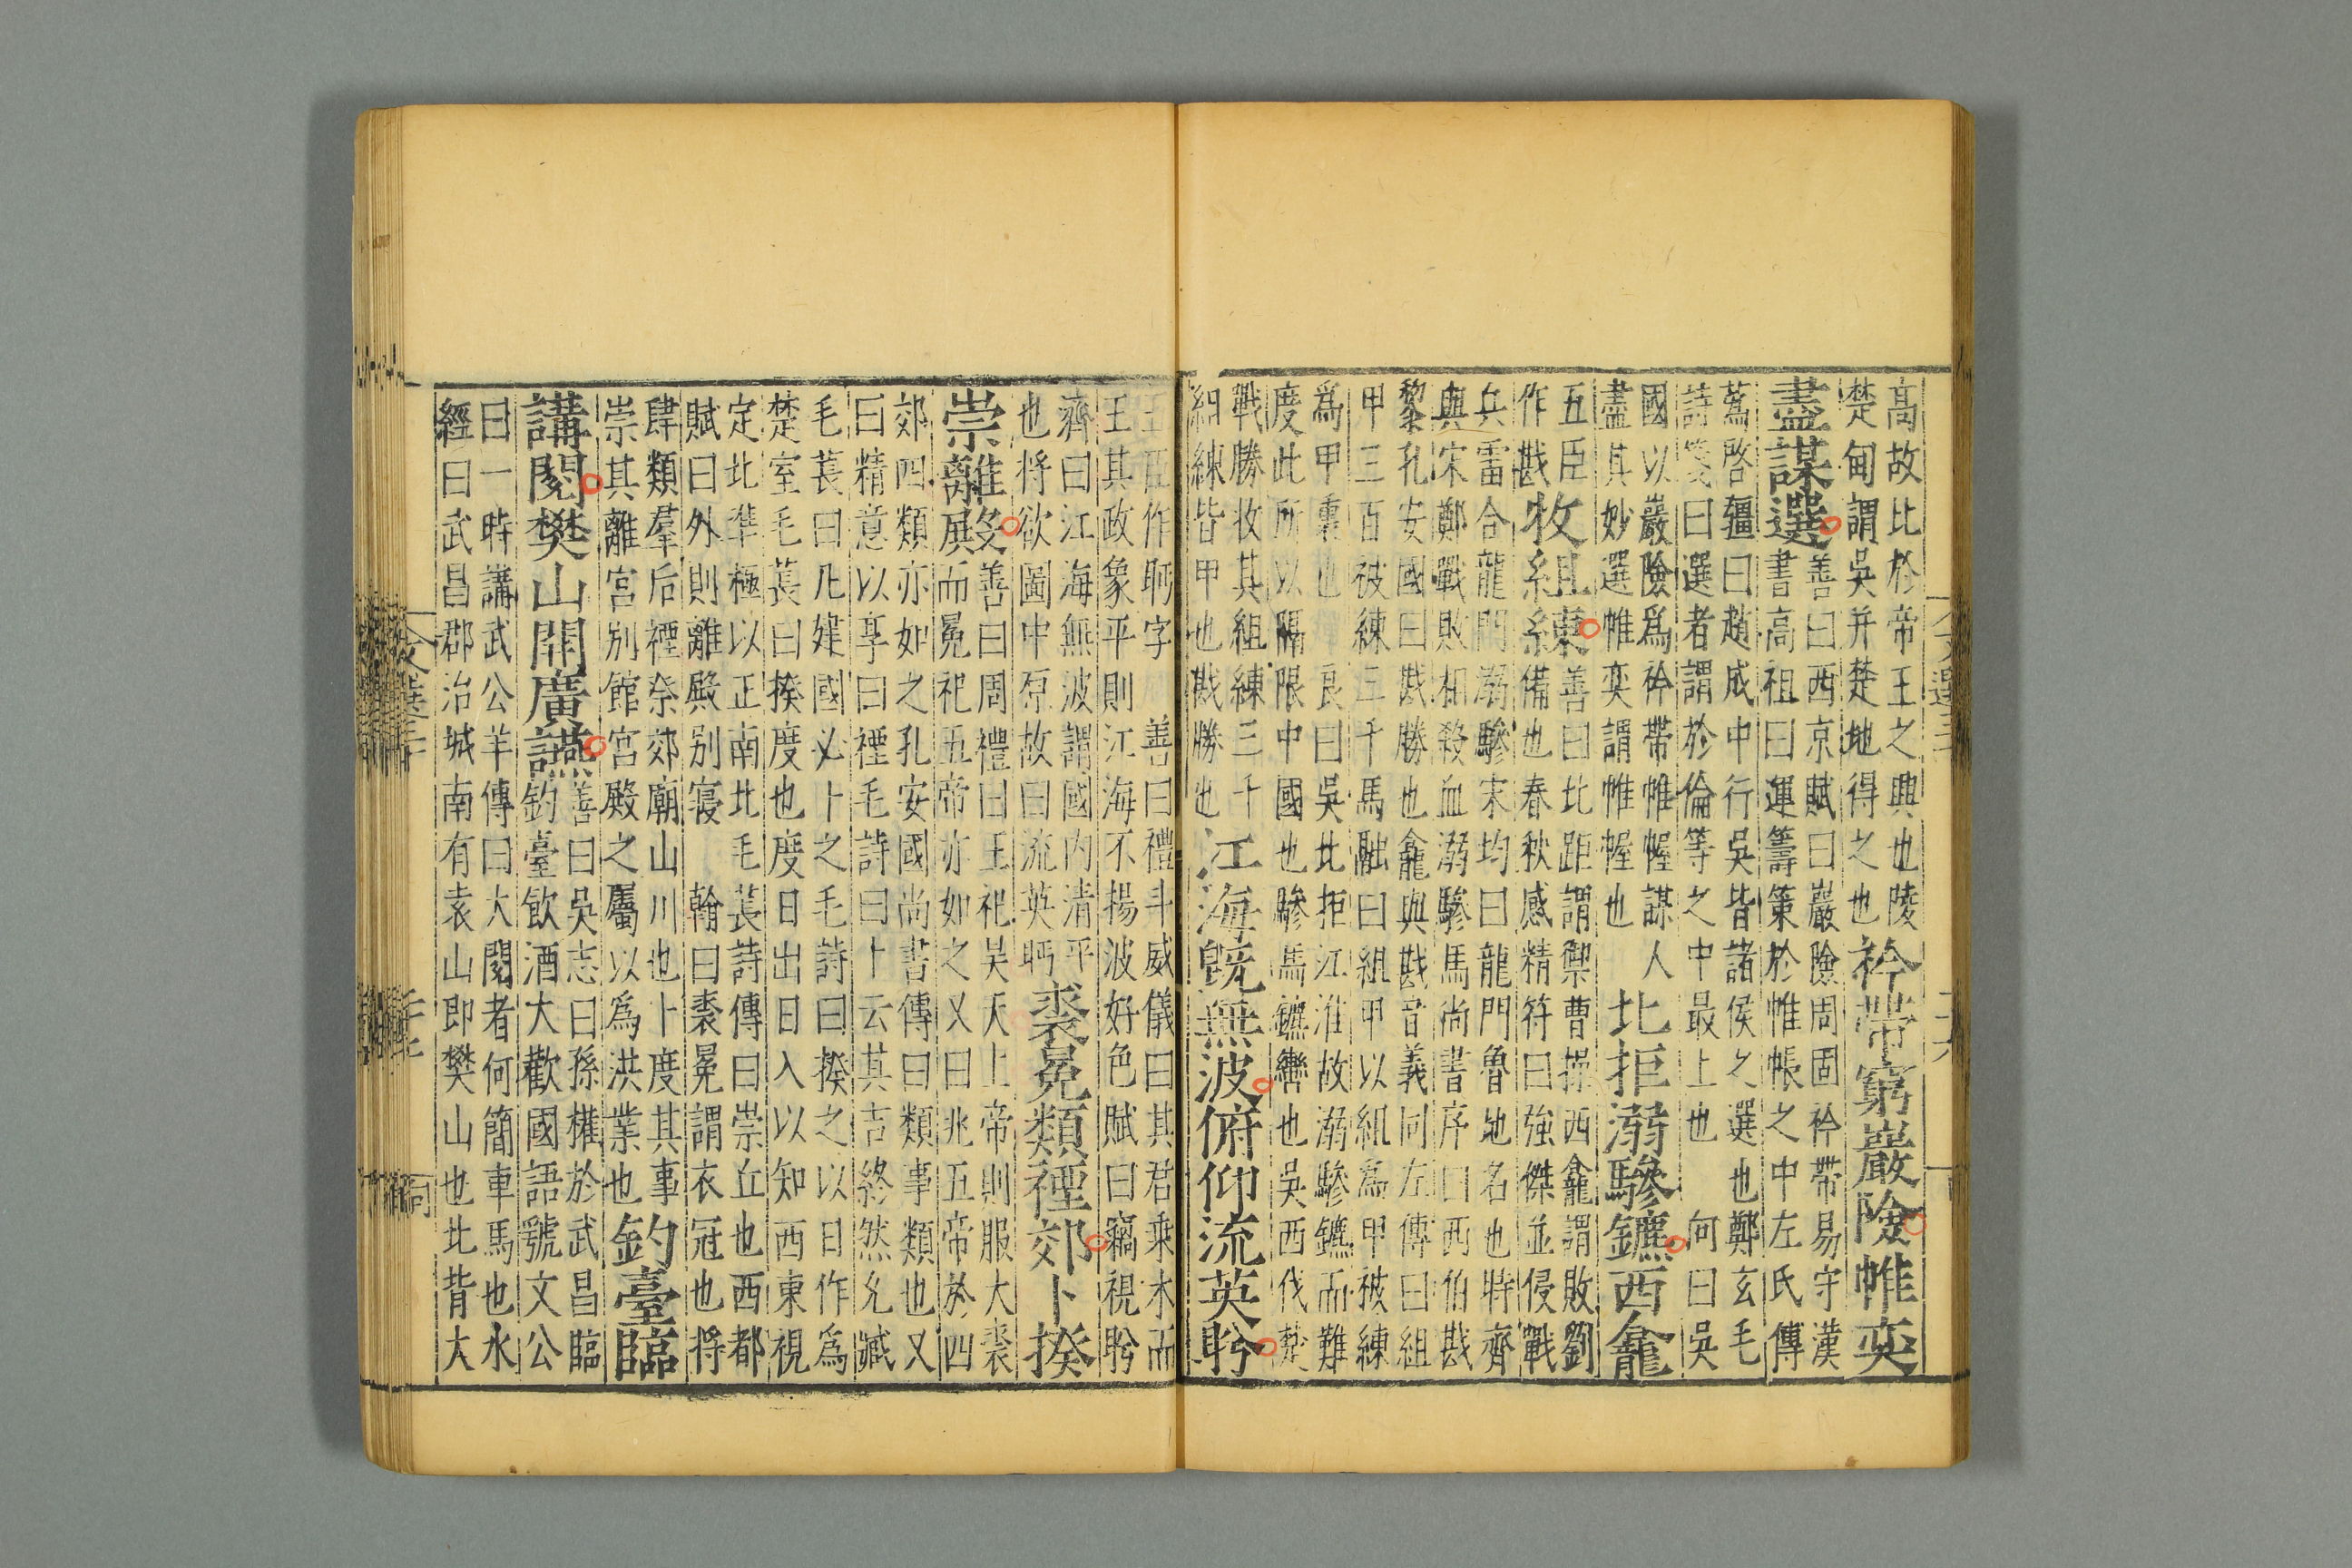 高故比於帝王之興也陵
楚甸謂吳并楚地得之也衿帶窮巖險帷奕
盡謀選善曰西京賦曰巖險周固衿帶易守漢
書高祖曰運籌策於帷帳之中左氏傳
蒍啓疆曰趙成中行吳皆諸侯之選也鄭玄毛
詩箋曰選者謂於倫等之中最上也 何曰吳
國以巖險爲衿帶帷幄謀人
盡其妙選帷奕謂帷幄也 北拒溺驂鑣西龕
五臣
作戡牧組練善曰北距謂禦曹操西龕謂敗劉
備也春秋感精符曰強傑並侵戰
兵雷合龍門溺驂宋均曰龍門魯地名也時齊
與宋鄭戰敗相殺血溺驂馬尚書序曰西伯戡
黎孔安國曰戡勝也龕與戡音義同左傳曰組
甲三百被練三千馬融曰組甲以組爲甲被練
爲甲裏也 良曰吳北拒江淮故溺驂鑣而難
度此所以隔限中國也驂馬鑣轡也吳西伐楚
戰勝牧其組練三千
組練皆甲也戡勝也江海旣無波俯仰流英盻
五臣作眄字 善曰禮斗威儀曰其君乘木而
王其政象平則江海不揚波好色賦曰竊視盻
齊曰江海無波謂國內清平
也將欲圖中原故曰流英眄裘冕類禋郊卜揆
崇離殿善曰周禮曰王祀昊天上帝則服大裘
而冕祀五帝亦如之又曰兆五帝於四
郊四類亦如之孔安國尚書傳曰類事類也又
曰精意以享曰禋毛詩曰卜云其吉終然允臧
毛萇曰凡建國必卜之毛詩曰揆之以日作爲
楚室毛萇曰揆度也度日出日入以知西東視
定北準極以正南北毛萇詩傳曰崇丘也西都
賦曰外則離殿別寢 翰曰裘冕謂衣冠也將
肆類羣后禋祭郊廟山川也卜度其事
崇其離宮別館宮殿之屬以爲洪業也釣臺臨
講閱樊山開廣讌善曰吳志曰孫權於武昌臨
釣臺飲酒大歡國語號文公
曰一時講武公羊傳曰大閱者何簡車馬也水
經曰武昌郡治城南有袁山即樊山也北背大